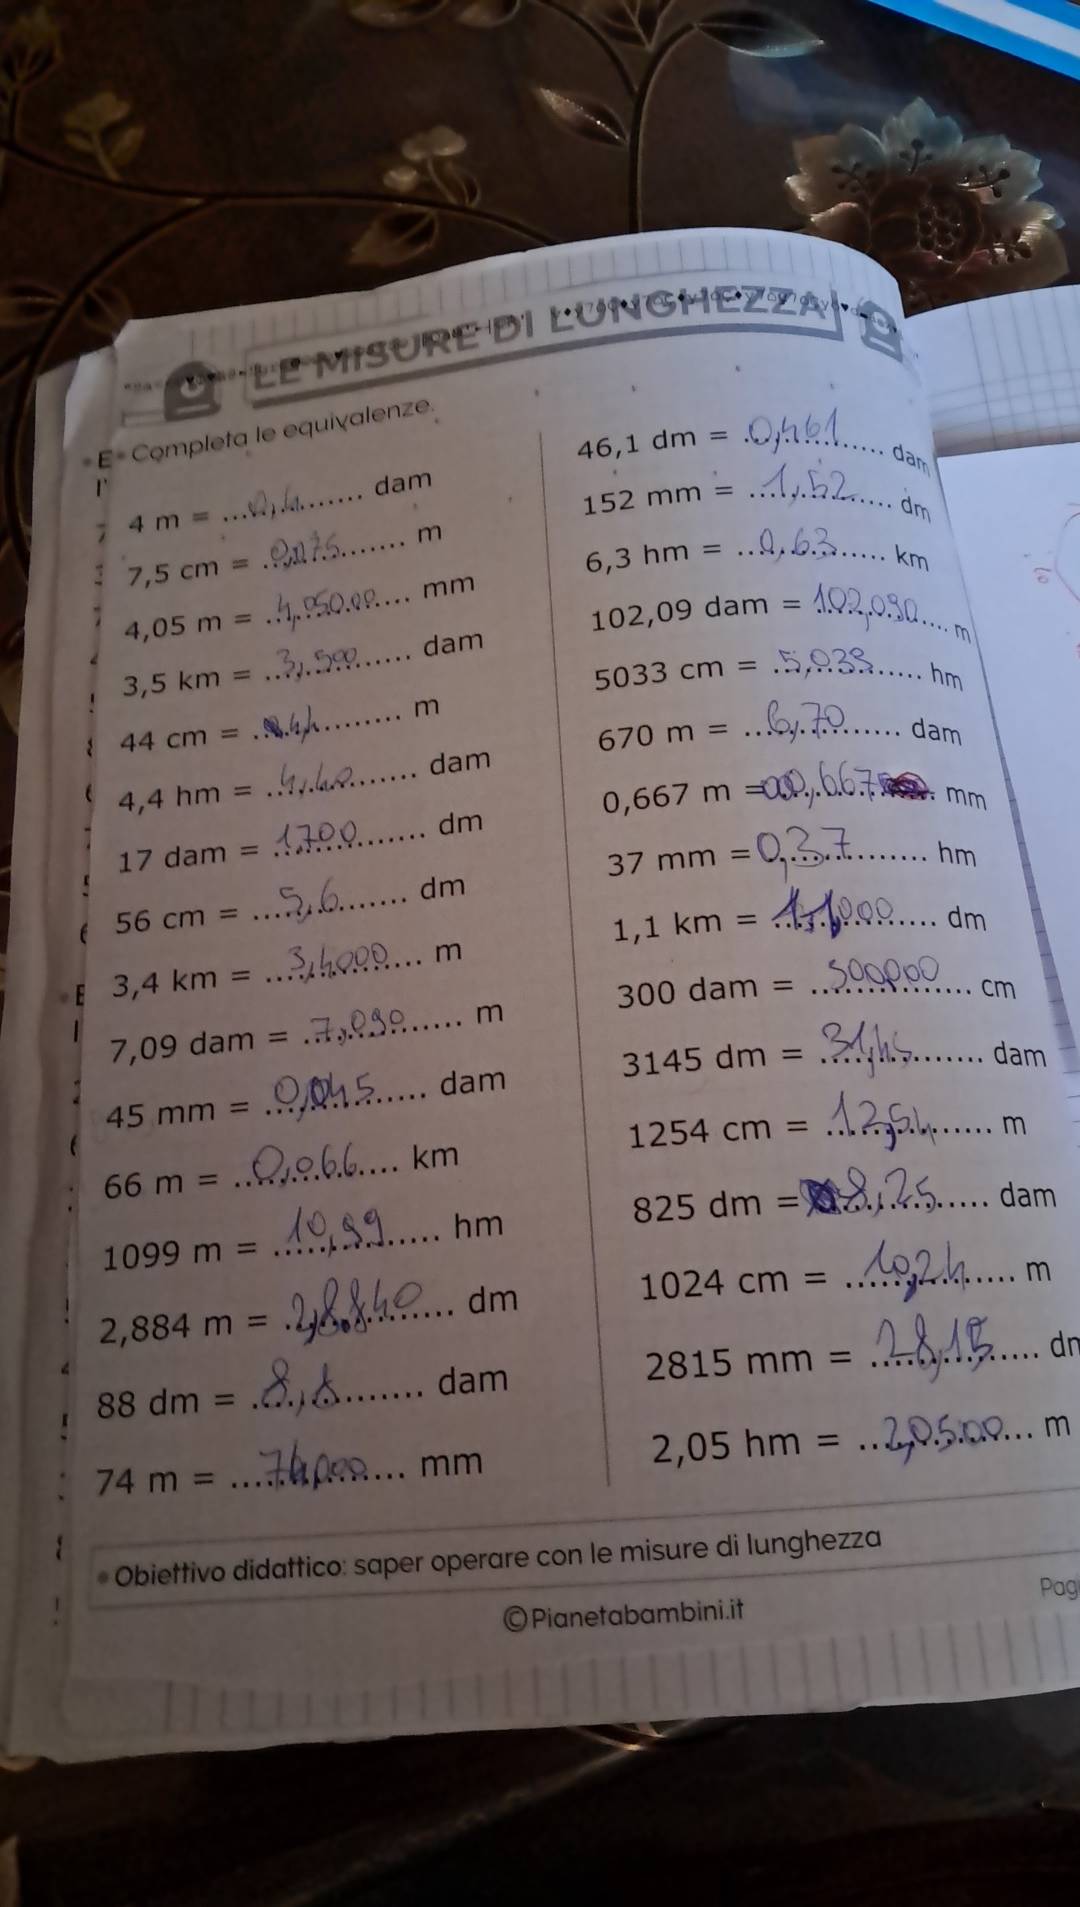 LE MISURE DI LUNGHEZZA
Completa le equivalenze.
4 m = 0,4 dam
7,5 cm = 0,075 m
4,05 m = 4,050.00 mm
3,5 km = 3,500 dam
44 cm = m
4,4 hm = 4,40 dam
17 dam = 1700 dm
56 cm = 5,6 dm
3,4 km = 3,4000 m
7,09 dam = 7,090 m
45 mm = 0,045 dam
66 m = 0,066 km
1099 m = 10,99 hm
2,884 m = 2,8.840 dm
88 dm = 8,8 dam
74 m = 74000 mm
46,1 dm = 0,461 dam
152 mm = 1,52 dm
6,3 hm = 0,63 km
102,09 dam = 102,090 m
5033 cm = 5,033 hm
670 m = 6,70 dam
0,667 m = mm
37 mm = 0,37 hm
1,1 km = dm
300 dam = 300000 cm
3145 dm = 31,45 dam
1254 cm = 12,54 m
825 dm = 8,25 dam
1024 cm = 10,24 m
2815 mm = 28,15
2,05 hm = 2,0500 m
Obiettivo didattico: saper operare con le misure di lunghezza
©Pianetabambini.it
Pag